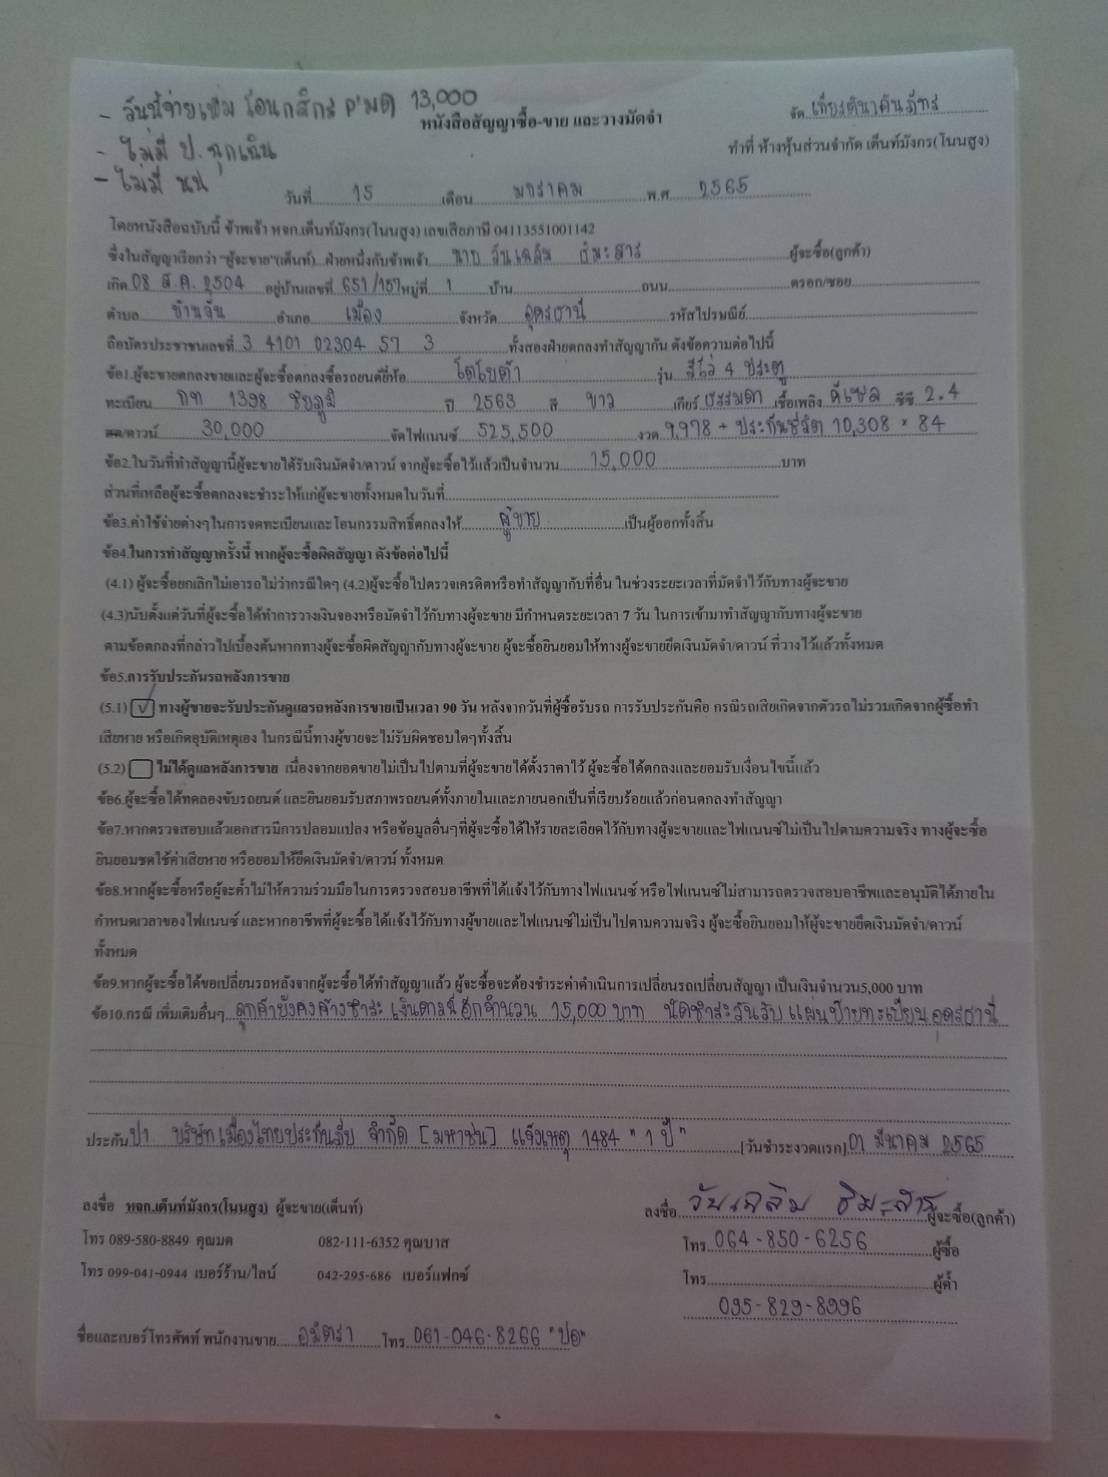 - วันนี้จ่ายเพิ่ม โอนกสิกร P'มด 13,000
หนังสือสัญญาซื้อ-ขาย และวางมัดจำ
จัด เกียรตินาคินภัทร
- ไม่มี ป. ฉุกเฉิน
ทำที่ ห้างหุ้นส่วนจำกัด เต็นท์มังกร(โนนสูง)
- ไม่มี
วันที่ 15 เดือน มกราคม พ.ศ. 2565
โดยหนังสือฉบับนี้ ข้าพเจ้า หจก.เต็นท์มังกร(โนนสูง) เลขเสียภาษี 04113551001142
ซึ่งในสัญญาเรียกว่า "ผู้จะขาย"(เต็นท์)...ฝ่ายหนึ่งกับข้าพเจ้า นาย วันเฉลิม ธิมะสาร ผู้จะซื้อ(ลูกค้า)
เกิด 08 ส.ค. 2504 อยู่บ้านเลขที่ 651/157 หมู่ที่ 1 บ้าน ถนน ตรอก/ซอย
ตำบล บ้านจั่น อำเภอ เมือง จังหวัด อุดรธานี รหัสไปรษณีย์
ถือบัตรประชาชนเลขที่ 3 4101 02304 57 3 ทั้งสองฝ่ายตกลงทำสัญญากัน ดังข้อความต่อไปนี้
ข้อ1.ผู้จะขายตกลงขายและผู้จะซื้อตกลงซื้อรถยนต์ยี่ห้อ โตโยต้า รุ่น รีโว่ 4 ประตู
ทะเบียน กท 1398 ชัยภูมิ ปี 2563 สี ขาว เกียร์ ธรรมดา เชื้อเพลิง ดีเซล ซีซี 2.4
สด/ดาวน์ 30,000 จัดไฟแนนซ์ 525,500 งวด 9,978 + ประกันชีวิต 10,308 × 84
ข้อ2.ในวันที่ทำสัญญานี้ผู้จะขายได้รับเงินมัดจำ/ดาวน์ จากผู้จะซื้อไว้แล้วเป็นจำนวน 15,000 บาท
ส่วนที่เหลือผู้จะซื้อตกลงจะชำระให้แก่ผู้จะขายทั้งหมดในวันที่
ข้อ3.ค่าใช้จ่ายต่างๆในการจดทะเบียนและโอนกรรมสิทธิ์ตกลงให้ ผู้ขาย เป็นผู้ออกทั้งสิ้น
ข้อ4.ในการทำสัญญาครั้งนี้ หากผู้จะซื้อผิดสัญญา ดังข้อต่อไปนี้
(4.1) ผู้จะซื้อยกเลิกไม่เอารถไม่ว่ากรณีใดๆ (4.2)ผู้จะซื้อไปตรวจเครดิตหรือทำสัญญากับที่อื่น ในช่วงระยะเวลาที่มัดจำไว้กับทางผู้จะขาย
(4.3)นับตั้งแต่วันที่ผู้จะซื้อได้ทำการวางเงินจองหรือมัดจำไว้กับทางผู้จะขาย มีกำหนดระยะเวลา 7 วัน ในการเข้ามาทำสัญญากับทางผู้จะขาย
ตามข้อตกลงที่กล่าวไปเบื้องต้นหากทางผู้จะซื้อผิดสัญญากับทางผู้จะขาย ผู้จะซื้อยินยอมให้ทางผู้จะขายยึดเงินมัดจำ/ดาวน์ ที่วางไว้แล้วทั้งหมด
ข้อ5.การรับประกันรถหลังการขาย
(5.1) ☑ ทางผู้ขายจะรับประกันดูแลรถหลังการขายเป็นเวลา 90 วัน หลังจากวันที่ผู้ซื้อรับรถ การรับประกันคือ กรณีรถเสียเกิดจากตัวรถไม่รวมเกิดจากผู้ซื้อทำ
เสียหาย หรือเกิดอุบัติเหตุเอง ในกรณีนี้ทางผู้ขายจะไม่รับผิดชอบใดๆทั้งสิ้น
(5.2) ☐ ไม่ได้ดูแลหลังการขาย เนื่องจากยอดขายไม่เป็นไปตามที่ผู้จะขายได้ตั้งราคาไว้ ผู้จะซื้อได้ตกลงและยอมรับเงื่อนไขนี้แล้ว
ข้อ6.ผู้จะซื้อได้ทดลองขับรถยนต์ และยินยอมรับสภาพรถยนต์ทั้งภายในและภายนอกเป็นที่เรียบร้อยแล้วก่อนตกลงทำสัญญา
ข้อ7.หากตรวจสอบแล้วเอกสารมีการปลอมแปลง หรือข้อมูลอื่นๆที่ผู้จะซื้อได้ให้รายละเอียดไว้กับทางผู้จะขายและไฟแนนซ์ไม่เป็นไปตามความจริง ทางผู้จะซื้อ
ยินยอมชดใช้ค่าเสียหาย หรือยอมให้ยึดเงินมัดจำ/ดาวน์ ทั้งหมด
ข้อ8.หากผู้จะซื้อหรือผู้จะค้ำไม่ให้ความร่วมมือในการตรวจสอบอาชีพที่ได้แจ้งไว้กับทางไฟแนนซ์ หรือไฟแนนซ์ไม่สามารถตรวจสอบอาชีพและอนุมัติได้ภายใน
กำหนดเวลาของไฟแนนซ์ และหากอาชีพที่ผู้จะซื้อได้แจ้งไว้กับทางผู้ขายและไฟแนนซ์ไม่เป็นไปตามความจริง ผู้จะซื้อยินยอมให้ผู้จะขายยึดเงินมัดจำ/ดาวน์
ทั้งหมด
ข้อ9.หากผู้จะซื้อได้ขอเปลี่ยนรถหลังจากผู้จะซื้อได้ทำสัญญาแล้ว ผู้จะซื้อจะต้องชำระค่าดำเนินการเปลี่ยนรถเปลี่ยนสัญญา เป็นเงินจำนวน5,000 บาท
ข้อ10.กรณี เพิ่มเติมอื่นๆ ลูกค้ายังคงค้างชำระ เงินดาวน์อีกจำนวน 15,000 บาท นัดชำระวันรับ แผ่นป้ายทะเบียนอุดรธานี
ประกัน ป1 บริษัท เมืองไทยประกันภัย จำกัด [มหาชน] แจ้งเหตุ 1484 " 1 ปี " [วันชำระงวดแรก] 01 มีนาคม 2565
ลงชื่อ หจก.เต็นท์มังกร(โนนสูง) ผู้จะขาย(เต็นท์)
ลงชื่อ วันเฉลิม ธิมะสาร ผู้จะซื้อ(ลูกค้า)
โทร 089-580-8849 คุณมด 082-111-6352 คุณบาส
โทร 064-850-6256 ผู้ซื้อ
โทร 099-041-0944 เบอร์ร้าน/ไลน์ 042-295-686 เบอร์แฟกซ์
โทร ผู้ค้ำ
095-829-8996
ชื่อและเบอร์โทรศัพท์ พนักงานขาย โทร 061-046-8266 "ปอ"